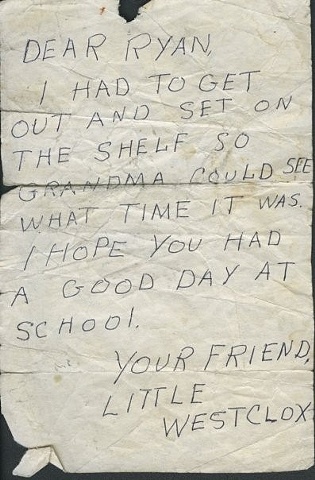 DEAR RYAN,
I HAD TO GET
OUT AND SET ON
THE SHELF SO
GRANDMA COULD SEE
WHAT TIME IT WAS.
I HOPE YOU HAD
A GOOD DAY AT
SCHOOl.
YOUR FRIEND,
LITTLE
WESTCLOX